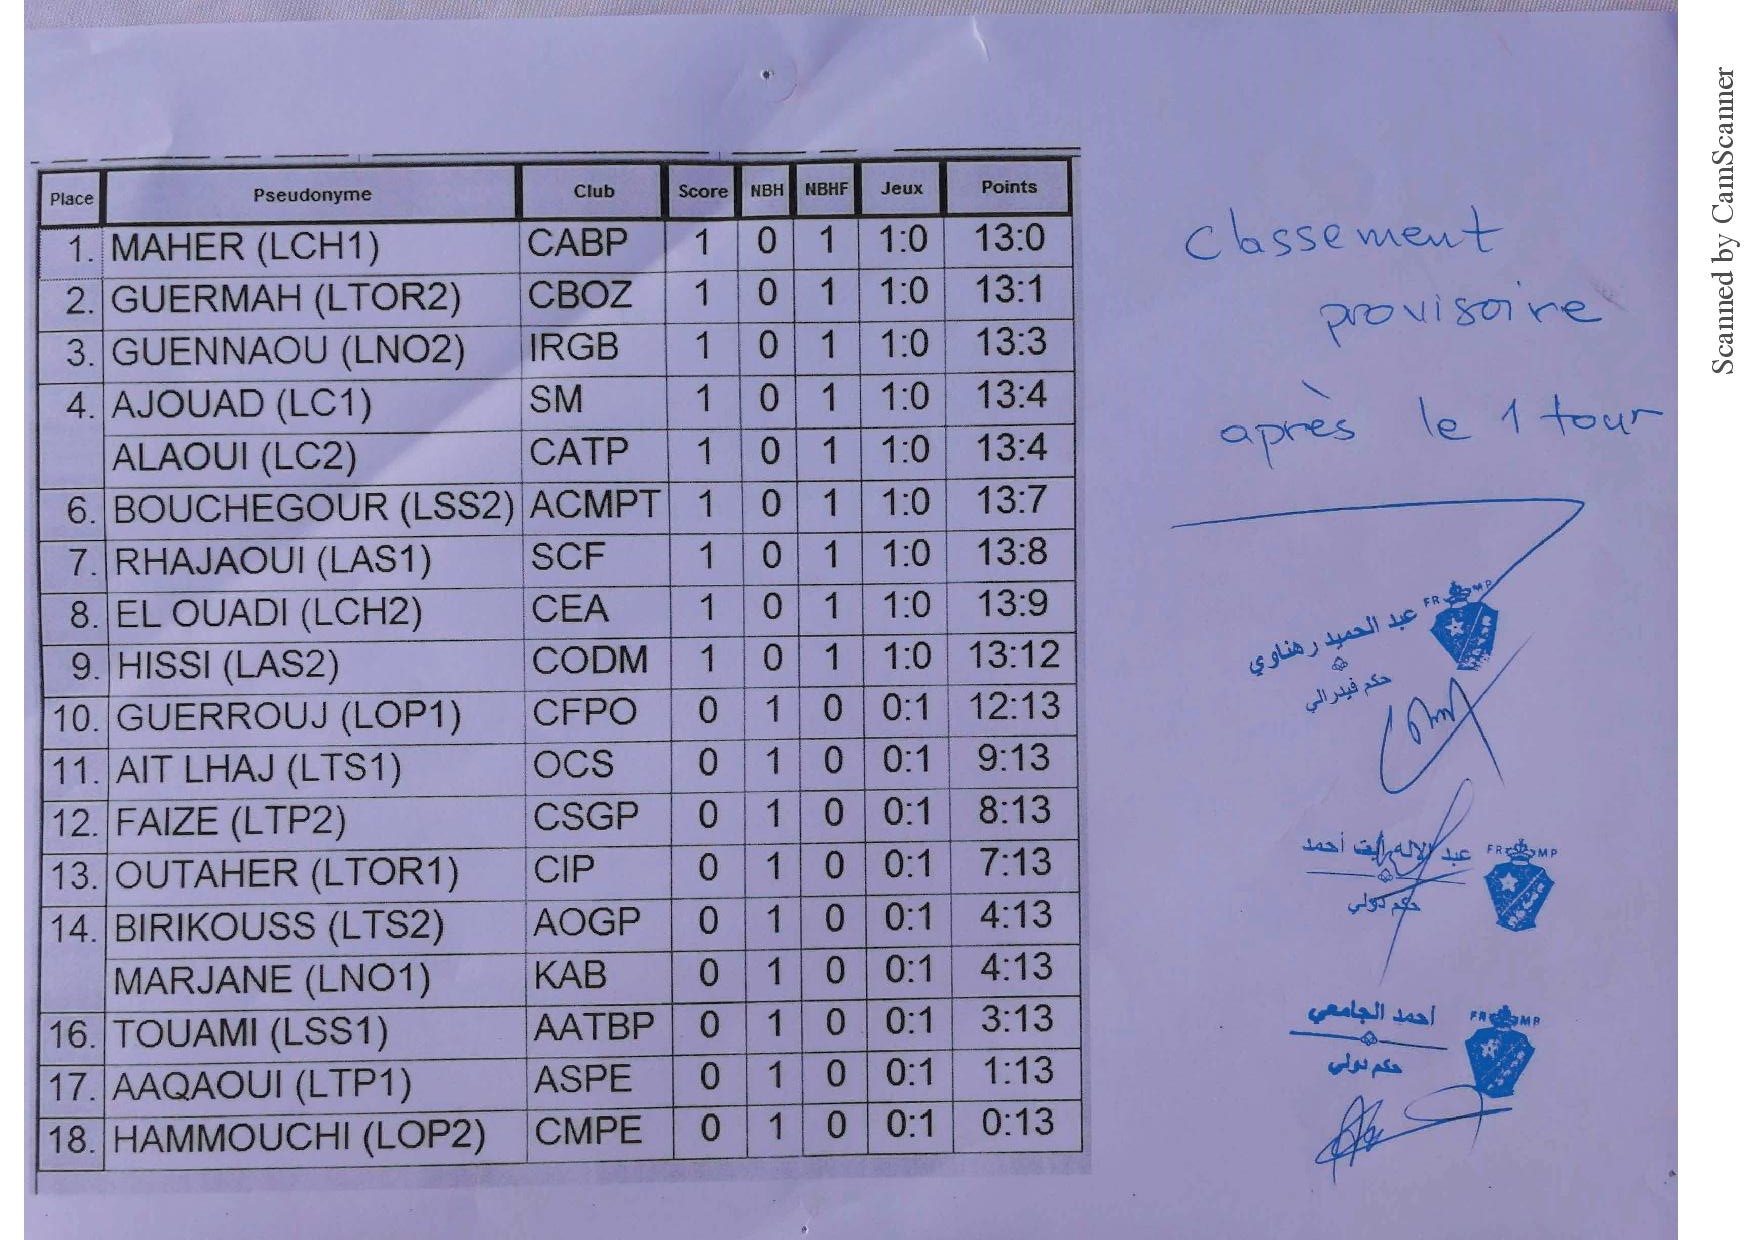 Place Pseudonyme Club Score NBH NBHF Jeux Points
1. MAHER (LCH1) CABP 1 0 1 1:0 13:0
2. GUERMAH (LTOR2) CBOZ 1 0 1 1:0 13:1
3. GUENNAOU (LNO2) IRGB 1 0 1 1:0 13:3
4. AJOUAD (LC1) SM 1 0 1 1:0 13:4
ALAOUI (LC2) CATP 1 0 1 1:0 13:4
6. BOUCHEGOUR (LSS2) ACMPT 1 0 1 1:0 13:7
7. RHAJAOUI (LAS1) SCF 1 0 1 1:0 13:8
8. EL OUADI (LCH2) CEA 1 0 1 1:0 13:9
9. HISSI (LAS2) CODM 1 0 1 1:0 13:12
10. GUERROUJ (LOP1) CFPO 0 1 0 0:1 12:13
11. AIT LHAJ (LTS1) OCS 0 1 0 0:1 9:13
12. FAIZE (LTP2) CSGP 0 1 0 0:1 8:13
13. OUTAHER (LTOR1) CIP 0 1 0 0:1 7:13
14. BIRIKOUSS (LTS2) AOGP 0 1 0 0:1 4:13
MARJANE (LNO1) KAB 0 1 0 0:1 4:13
16. TOUAMI (LSS1) AATBP 0 1 0 0:1 3:13
17. AAQAOUI (LTP1) ASPE 0 1 0 0:1 1:13
18. HAMMOUCHI (LOP2) CMPE 0 1 0 0:1 0:13
Classement
provisoire
après le 1 tour
عبد الحميد رهناوي
حكم فيدرالي
عبد الإله أيت أحمد
حكم دولي
احمد الجامعي
حكم دولي
Scanned by CamScanner